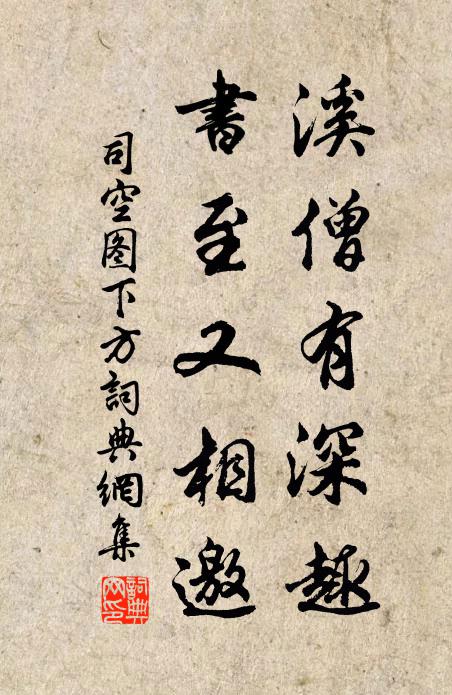 溪僧有深趣
書至又相邀
司空图下方詞典網集
詞典網印